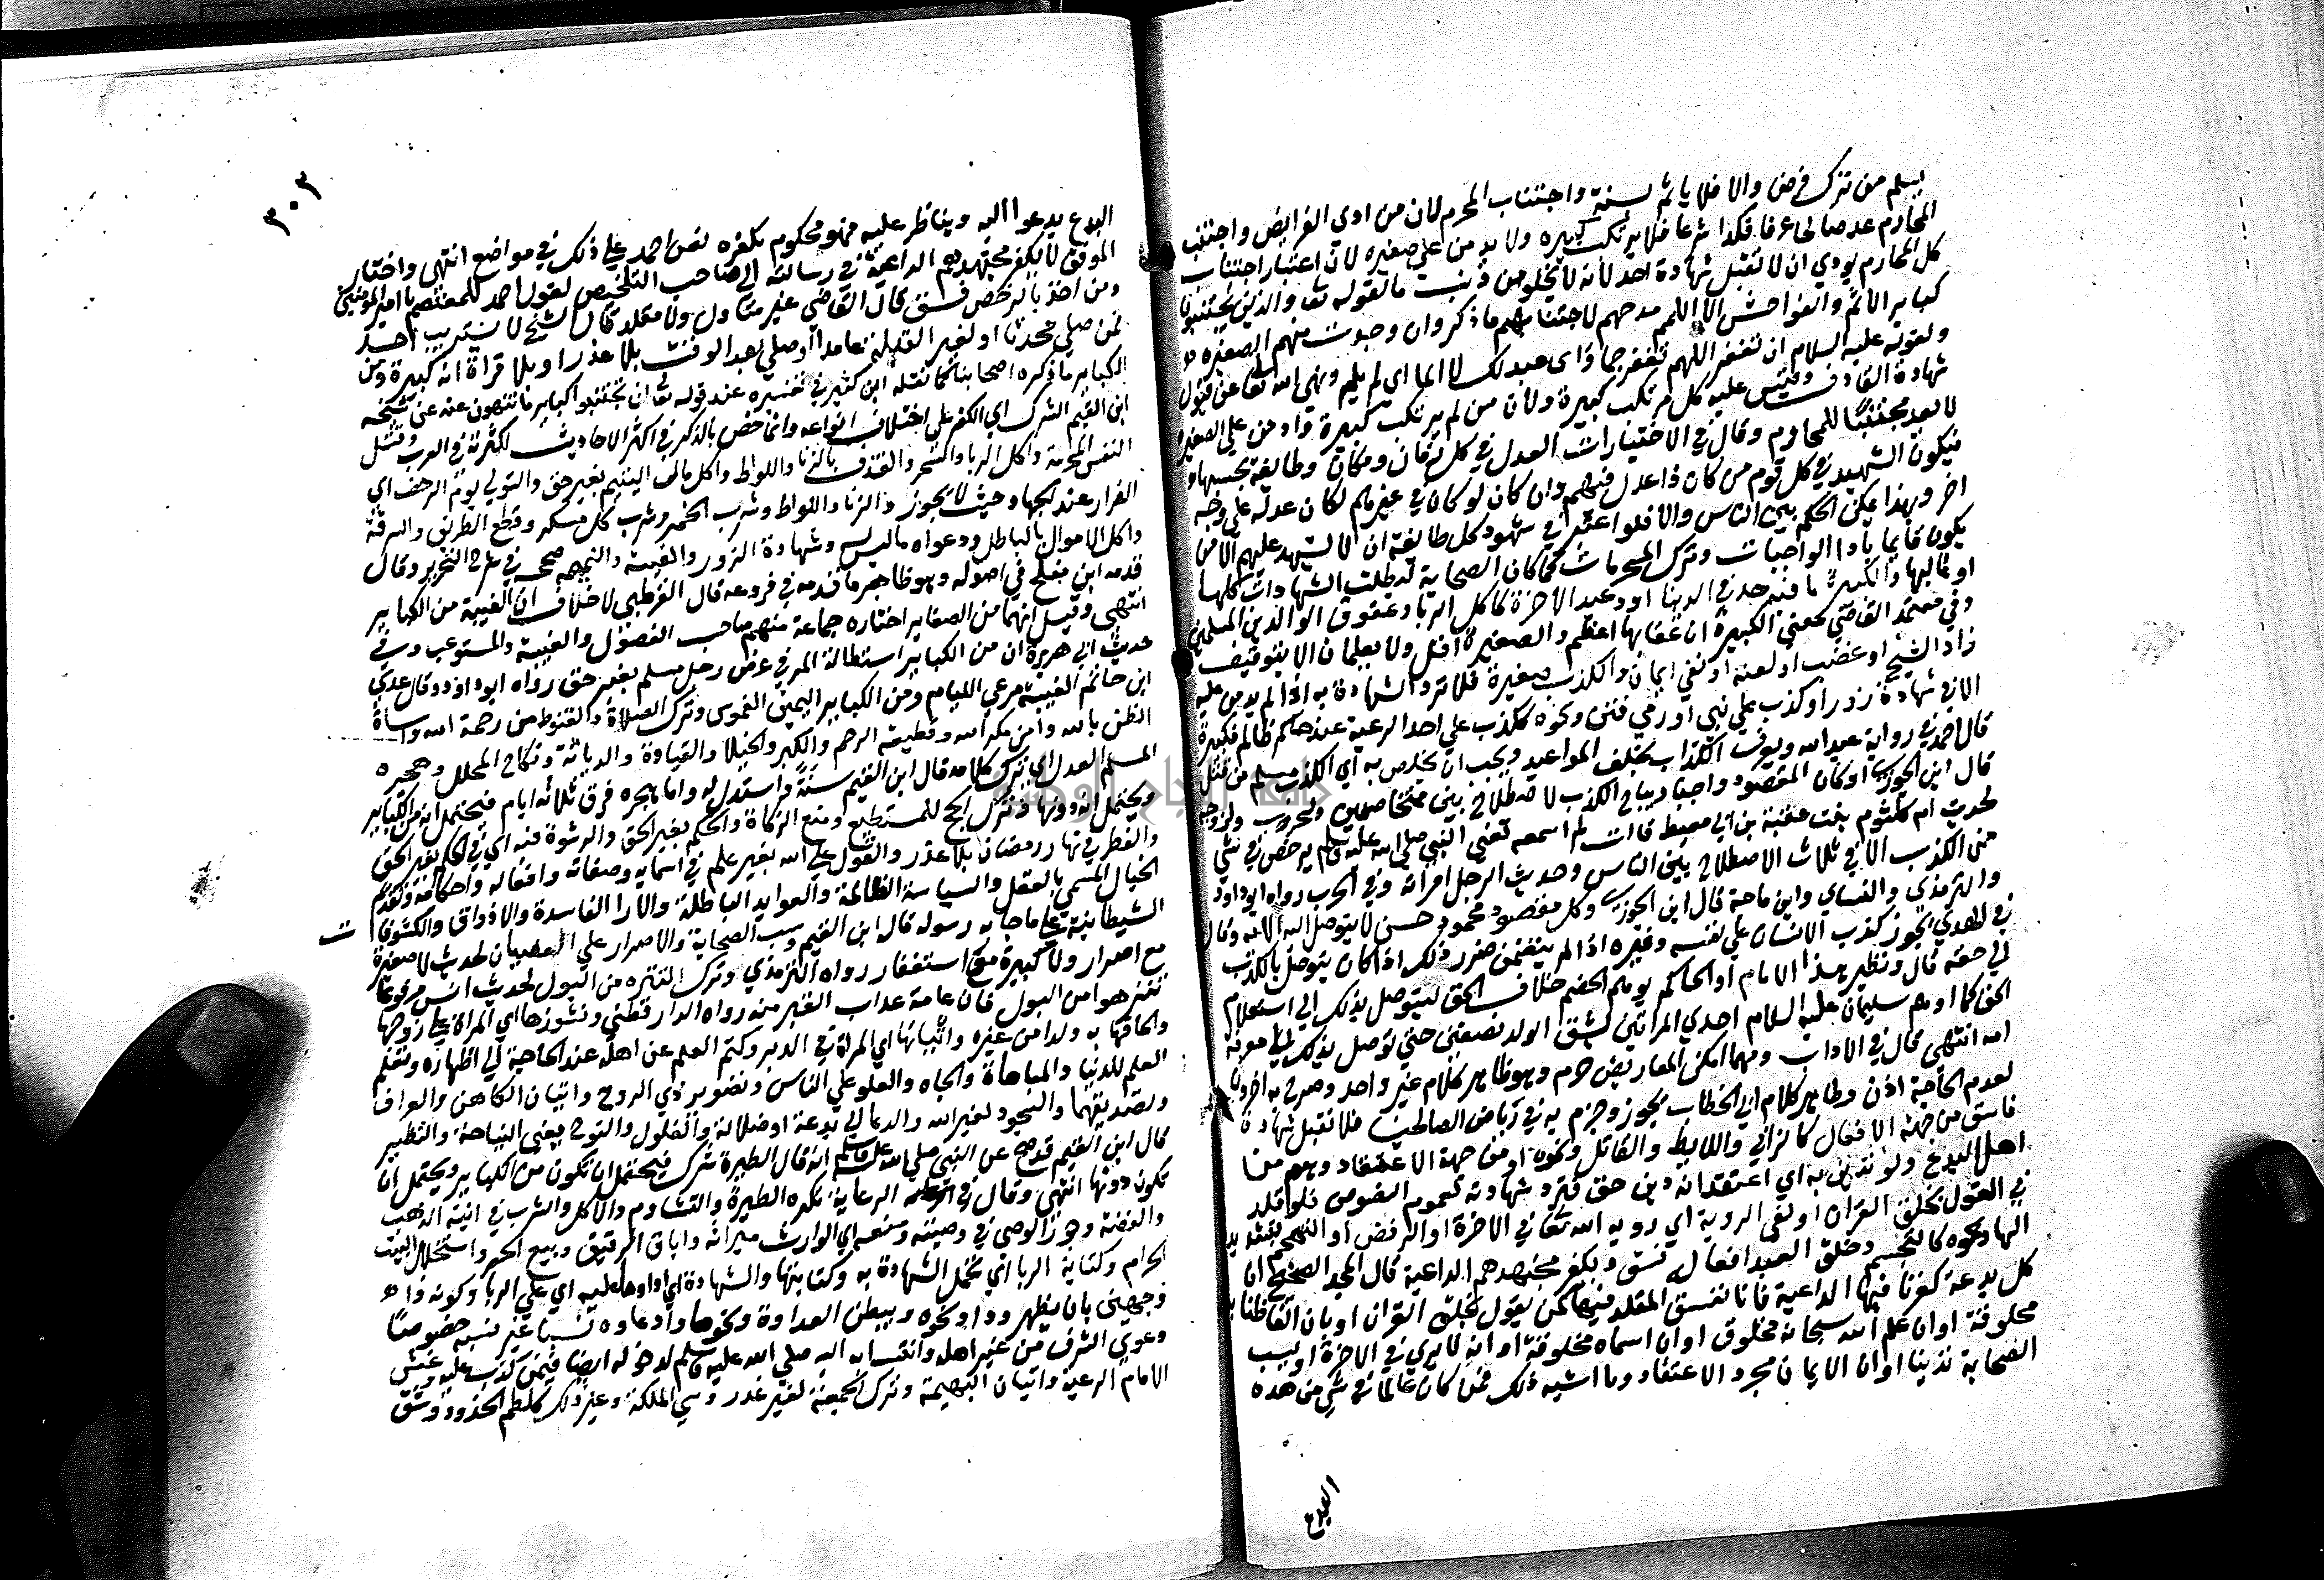 يسلم من ترك فرض والا فلا ياثم لسنة واجتناب المحرم لان من ادى الفرايض واجتنب
المحارم عد صالحا عرفا فكذا شرعا فلا يرتكب كبيرة ولا يدمن على صغيره لان اعتبار اجتناب
كل المحارم يودي ان لا تقبل شهادة احد لانه لا يخلو من ذنب ما لقوله تعا والذين يجتنبون
كباير الاثم والفواحش الا اللمم مدحهم لاجتنابهم ما ذكر وان وجدت منهم الصغيره
ولقوله عليه السلام ان تغفر اللهم تغفر جما واى عبد لك لا الما اي لم يلم ونهى الله تعا عن قبول
شهادة القاذف وقيس عليه كل مرتكب كبيرة ولان من لم يرتكب كبيرة وادمن على الصغيرة
لا يعد مجتنبا للمحارم وقال في الاختيارات العدل في كل زمان ومكان وطايفة بحسبها
فيكون الشهيد في كل قوم من كان ذا عدل فيهم وان كان لو كان في غيرهم لكان عدله على وجه
اخر وبهذا يمكن الحكم بين الناس والا فلو اعتبر في شهود كل طايفة ان لا يشهد عليهم الا من
يكون قايما بادا الواجبات وترك المحرمات كما كان الصحابة لبطلت الشهادات كلها
او غالبها والكبيرة ما فيه حد في الدنيا او وعيد الاخرة كاكل الربا وعقوق الوالدين المسلمين
وفي معتمد القاضي معنى الكبيرة ان عقابها اعظم والصغيرة اقل ولا يعلمان الا بتوقيف
زاد الشيخ او غضب او لعنة او نفي ايمان والكذب صغيرة فلا ترد الشهادة به اذا لم يدمن عليه
الا في شهادة زور او كذب على نبي او رمي فتن ونحوه ككذب على احد الرعية عند حاكم ظالم فكبيرة
قال احمد في رواية عبد الله ويعرف الكذاب بخلف المواعيد ويجب ان يخلص به اي الكذب مسلم من قتل
قال ابن الجوزي او كان المقصود واجبا ويباح الكذب لاصلاح بين متخاصمين ولحرب ولزوجة
لحديث ام كلثوم بنت عقبة بن ابي معيط قالت لم اسمعه تعني النبي صلى الله عليه وسلم يرخص في شي
من الكذب الا في ثلاث الاصلاح بين الناس وحديث الرجل امراته وفي الحرب رواه ابو داود
والترمذي والنساي وابن ماجة قال ابن الجوزي وكل مقصود محمود حسن لا يتوصل اليه الا به وقال
في الهدي يجوز كذب الانسان على نفسه وغيره اذا لم يتضمن ضرر ذلك اذا كان يتوصل بالكذب
الى حقه قال ونظير هذا الامام او الحاكم يوهم الخصم خلاف الحق ليتوصل بذلك الى استعلام
الحق كما اوهم سليمان عليه السلام احدي المراتين بشق الولد نصفين حتى توصل بذلك الى معرفة
امه انتهى قال في الاداب ومهما امكن المعاريض حرم وهو ظاهر كلام غير واحد وصرح به اخرون
لعدم الحاجة اذن وظاهر كلام ابي الخطاب يجوز وجزم به في رياض الصالحين فلا تقبل شهادة
فاسق من جهة الافعال كالزاني واللايط والقاتل ونحوه او من جهة الاعتقاد وهم من
اهل البدع ولو تدين به اي اعتقد انه دين حق فترد شهادته لعموم النصوص فلو قلد
في القول بخلق القران او نفي الروية اي روية الله تعا في الاخرة او الرفض او التجهم لتقليد
الهاد ونحوه كالتجسيم وخلق العبد افعاله فسق ويكفر مجتهدهم الداعية قال المجد الصحيح ان
كل بدعة كفرنا فيها الداعية فانا نفسق المقلد فيها كمن يقول بخلق القران او بان الفاظنا به
مخلوقة او ان علم الله سبحانه مخلوق او ان اسماه مخلوقة او انه لا يرى في الاخرة او يسب
الصحابة تدينا او ان الايمان مجرد الاعتقاد وما اشبه ذلك فمن كان عالما في شي من هذه
البدع
٣٠٣
البدع يدعوا اليه ويناظر عليه فهو محكوم بكفره نص احمد على ذلك في مواضع انتهى واختار
الموفق لا يكفر مجتهدهم الداعية في رسالته الى صاحب التلخيص لقول احمد للمعتصم يا امير المومنين
ومن اخذ بالرخص فسق قال القاضي غير متاول ولا مقلد قال الشيخ لا يستريب احد
فمن صلى محدثا او لغير القبلة عامدا او صلى بعد الوقت بلا عذر او بلا قراة انه كبيرة ومن
الكباير ما ذكره اصحابنا كما نقله ابن كثير في تفسيره عند قوله تعا ان تجتنبوا كباير ما تنهون عنه عن شيخه
ابن القيم الشرك اي الكفر على اختلاف انواعه وانما خص بالذكر في اكثر الاحاديث لكثرته في العرب وقتل
النفس المحرمة واكل الربا والسحر والقذف بالزنا واللواط واكل مال اليتيم بغير حق والتولي يوم الزحف اي
الفرار عند الجهاد حيث لا يجوز والزنا واللواط وشرب الخمر وشرب كل مسكر وقطع الطريق والسرقة
واكل الاموال بالباطل ودعواه ما ليس له وشهادة الزور والغيبة والنميمة صححه في شرح التحرير وقال
قدمه ابن مفلح في اصوله وهو ظاهر ما قدمه في فروعه قال القرطبي لا خلاف ان الغيبة من الكباير
انتهى وقيل انهما من الصغاير اختاره جماعة منهم صاحب الفصول والغنية والمستوعب وفي
حديث ابي هريرة ان من الكباير استطالة المرء في عرض رجل مسلم بغير حق رواه ابو داود وقال عدي
ابن حاتم الغيبة مرعى اللئام ومن الكباير اليمين الغموس وترك الصلاة والقنوط من رحمة الله واساة
الظن بالله وامن مكر الله وقطيعة الرحم والكبر والخيلا والقيادة والدياثة ونكاح المحلل وهجرة
المسلم العدل اي ترك كلامه قال ابن القيم سنة واستدل له واما هجره فوق ثلاثة ايام فيحتمل انه من الكباير
ويحتمل انه دونها وترك الحج للمستطيع ومنع الزكاة والحكم بغير الحق والرشوة فيه اي في الحكم بغير الحق
والفطر في نهار رمضان بلا عذر والقول على الله بغير علم في اسمايه وصفاته وافعاله واحكامه وتقديم
الخيال المسمى بالعقل والسياسة الظالمة والعوايد الباطلة والارا الفاسدة والاذواق والكشوفات
الشيطانية على ما جا به رسوله قال ابن القيم وسب الصحابة والاصرار على العصيان لحديث لا صغيرة
مع اصرار ولا كبيرة مع استغفار رواه الترمذي وترك التنزه من البول لحديث انس مرفوعا
تنزهوا من البول فان عامة عذاب القبر منه رواه الدارقطني ونشوزها اي المراة على زوجها
والحاقها به ولدا من غيره واتيانها اي المراة في الدبر وكتم العلم عن اهله عند الحاجة الى اظهاره وتعلم
العلم للدنيا والمباهاة والجاه والعلو على الناس وتصوير ذي الروح واتيان الكاهن والعراف
وتصديقهما والسجود لغير الله والدعا الى بدعة او ضلالة والغلول والنوح يعني النياحة والتطير
قال ابن القيم قد صح عن النبي صلى الله عليه وسلم انه قال الطيرة شرك فيحتمل ان تكون من الكباير ويحتمل ان
تكون دونها انتهى وقال في الرعاية تكره الطيرة والتشاوم والاكل والشرب في انية الذهب
والفضة وجور الموصي في وصيته ومنعه اي الوارث ميراثه واباق الرقيق وبيع الحر واستحلال البيت
الحرام وكتابة الربا اي تحمل الشهادة به وكتابتها والشهادة اي اداوها عليه اي على الربا وكونه ذا
وجهين بان يظهر ودا ونحوه ويبطن العداوة ونحوها وادعاوه نسبا غير نسبه خصوصا
دعوى الشرف من غير اهله وانتسابه اليه صلى الله عليه وسلم لدخوله ايضا فيمن كذب عليه وغش
الامام الرعية واتيان البهيمة وترك الجمعة لغير عذر وسي الملكة وغير ذلك كلطم الخدود وشق